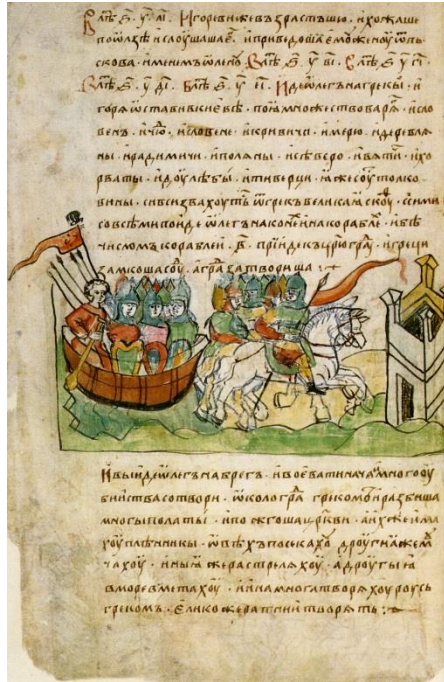 В лѣт҃ ѕ҃ . у҃ . аі҃ . Игореви же взрастъшю . и хожаше
по ѡлзѣ и слоушаша е҃ . и приведоша емоу женоу ѿ пь
скова . именемъ ѡленоу В лѣт҃ ѕ҃ . у҃ ві҃ . В лѣт҃ ѕ҃ у҃ гі҃
В лѣт҃ ѕ҃ . у҃ ді҃ . В лѣт҃ ѕ҃ . у҃ еі҃ . Иде ѡлегъ на грекы . и
горѧ ѡстави в киевѣ . поꙗ множество варѧ . и сло
венъ . и чю҃ . и словене . и кривичи . и мерю . и деревлѧ
ны . и радимичи . и полѧны . и северо . и вѧтичи . и хо
рваты . и доулѣбы . и тиверци . ꙗже соу толко
вины . си вси звахоуть ѿ грекъ великаꙗ скоу . с сими
со всеми поиде ѡлегъ на коне и на кораблѣ . и бѣ
числомъ кораблеи . в҃ . прїиде къ цр҃ю гра . и греци
замкоша соу . а гра затвориша :
И выиде ѡлегъ на брегъ . и воевати нача . и много оу
бииства сотвори . ѡколо гра греко . и разбиша
многы полаты . и пожгоша цр҃кви . а их же има
хоу плѣнникы . ѡвѣхъ посекахоу дроугиꙗ же м
чахоу . иныꙗ же растрелѧхоу . а дроугыꙗ
в море вметахоу . и ина многа творѧхоу роусь
грекомъ . елико же ратнии творѧть :